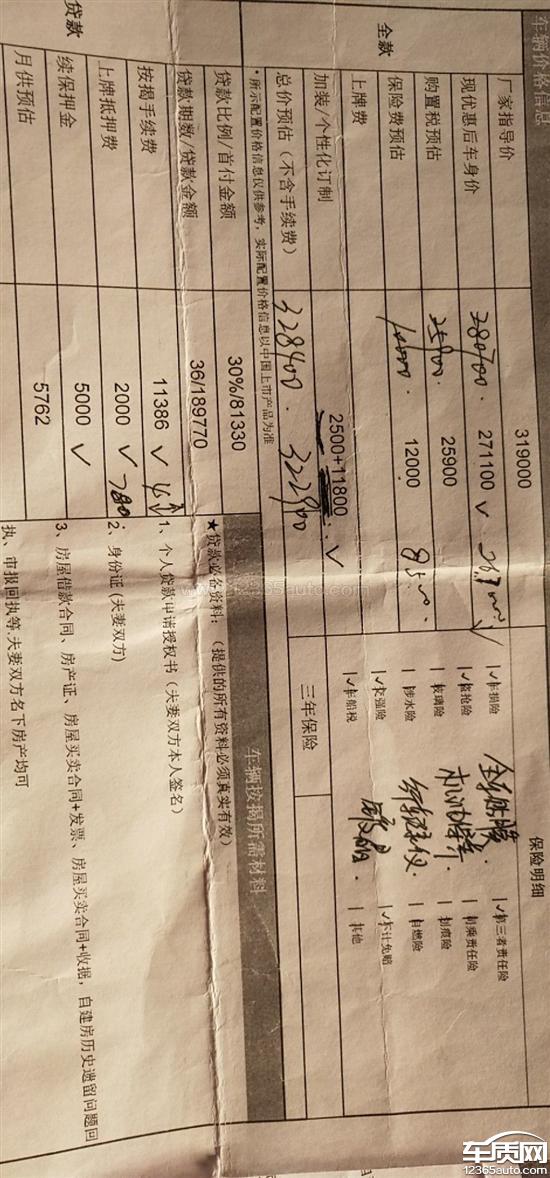 车辆价格信息
厂家指导价 319000
现优惠后车身价 280700. 271100 ✓
全款
购置税预估 25900 25900
保险费预估 12000
上牌费
加装/个性化订制 2500+11800 ✓
总价预估（不含手续费） 328400. 322900
*所示配置价格信息仅供参考，实际配置价格信息以中国上市产品为准
贷款
贷款比例/首付金额 30%/81330
贷款期数/贷款金额 36/189770
按揭手续费 11386 ✓
上牌抵押费 2000 ✓ 780
续保押金 5000 ✓
月供预估 5762
保险明细
✓车损险 ✓第三者责任险
✓盗抢险
玻璃险 划痕险
涉水险 自燃险
✓交强险 ✓不计免赔
✓车船税 其他
三年保险
车辆按揭所需材料
★贷款必备资料：（提供的所有资料必须真实有效）
1、个人贷款申请授权书（夫妻双方本人签名）
2、身份证(夫妻双方)
3、房屋借款合同、房产证、房屋买卖合同+发票、房屋买卖合同+收据，自建房历史遗留问题回
执、审报回执等.夫妻双方名下房产均可
www.12365auto.com
车质网
12365auto.com